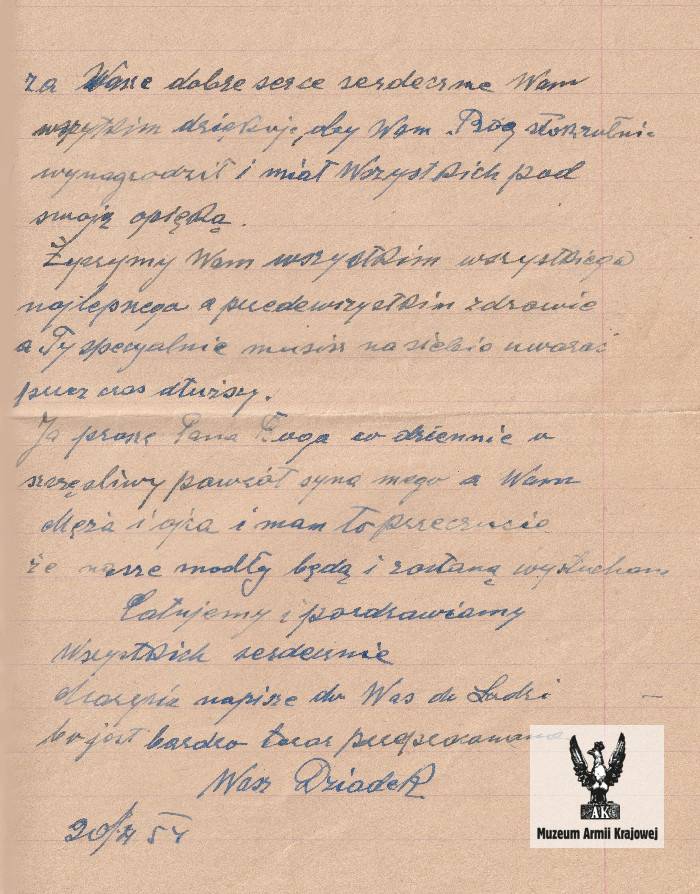 za Wasze dobre serce serdecznie Wam
wszystkim dziękuję, aby Wam Bóg stokrotnie
wynagrodził i miał Wszystkich pod
swoją opieką.
Życzymy Wam wszystkim wszystkiego
najlepszego a przedewszystkim zdrowie
a Ty specyalnie musisz na siebie uważać
przez czas dłuższy.
Ja proszę Pana Boga co dziennie o
szczęśliwy powrót syna mego a Wam
Męża i ojca i mam to przeczucie
że nasze modły będą i zostaną wysłuchane
Całujemy i pozdrawiamy
Wszystkich serdecznie
napisze do Was do Łodzi
bo jest bardzo teraz przepracowana
Wasz Dziadek
54
AK
Muzeum Armii Krajowej